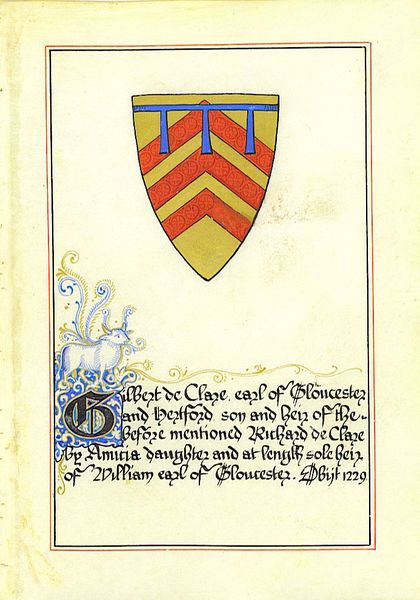 Gilbert de Clare, earl of Gloucester
and Hertford son and heir of the
before mentioned Richard de Clare
by Amicia daughter and at length sole heir
of William earl of Gloucester. Obijt 1229